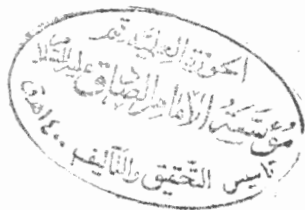 الحوزة العلمية قم
مؤسسة الإمام الصادق عليه السلام
تأسيس التحقيق والتأليف ١٤٠٠هـ